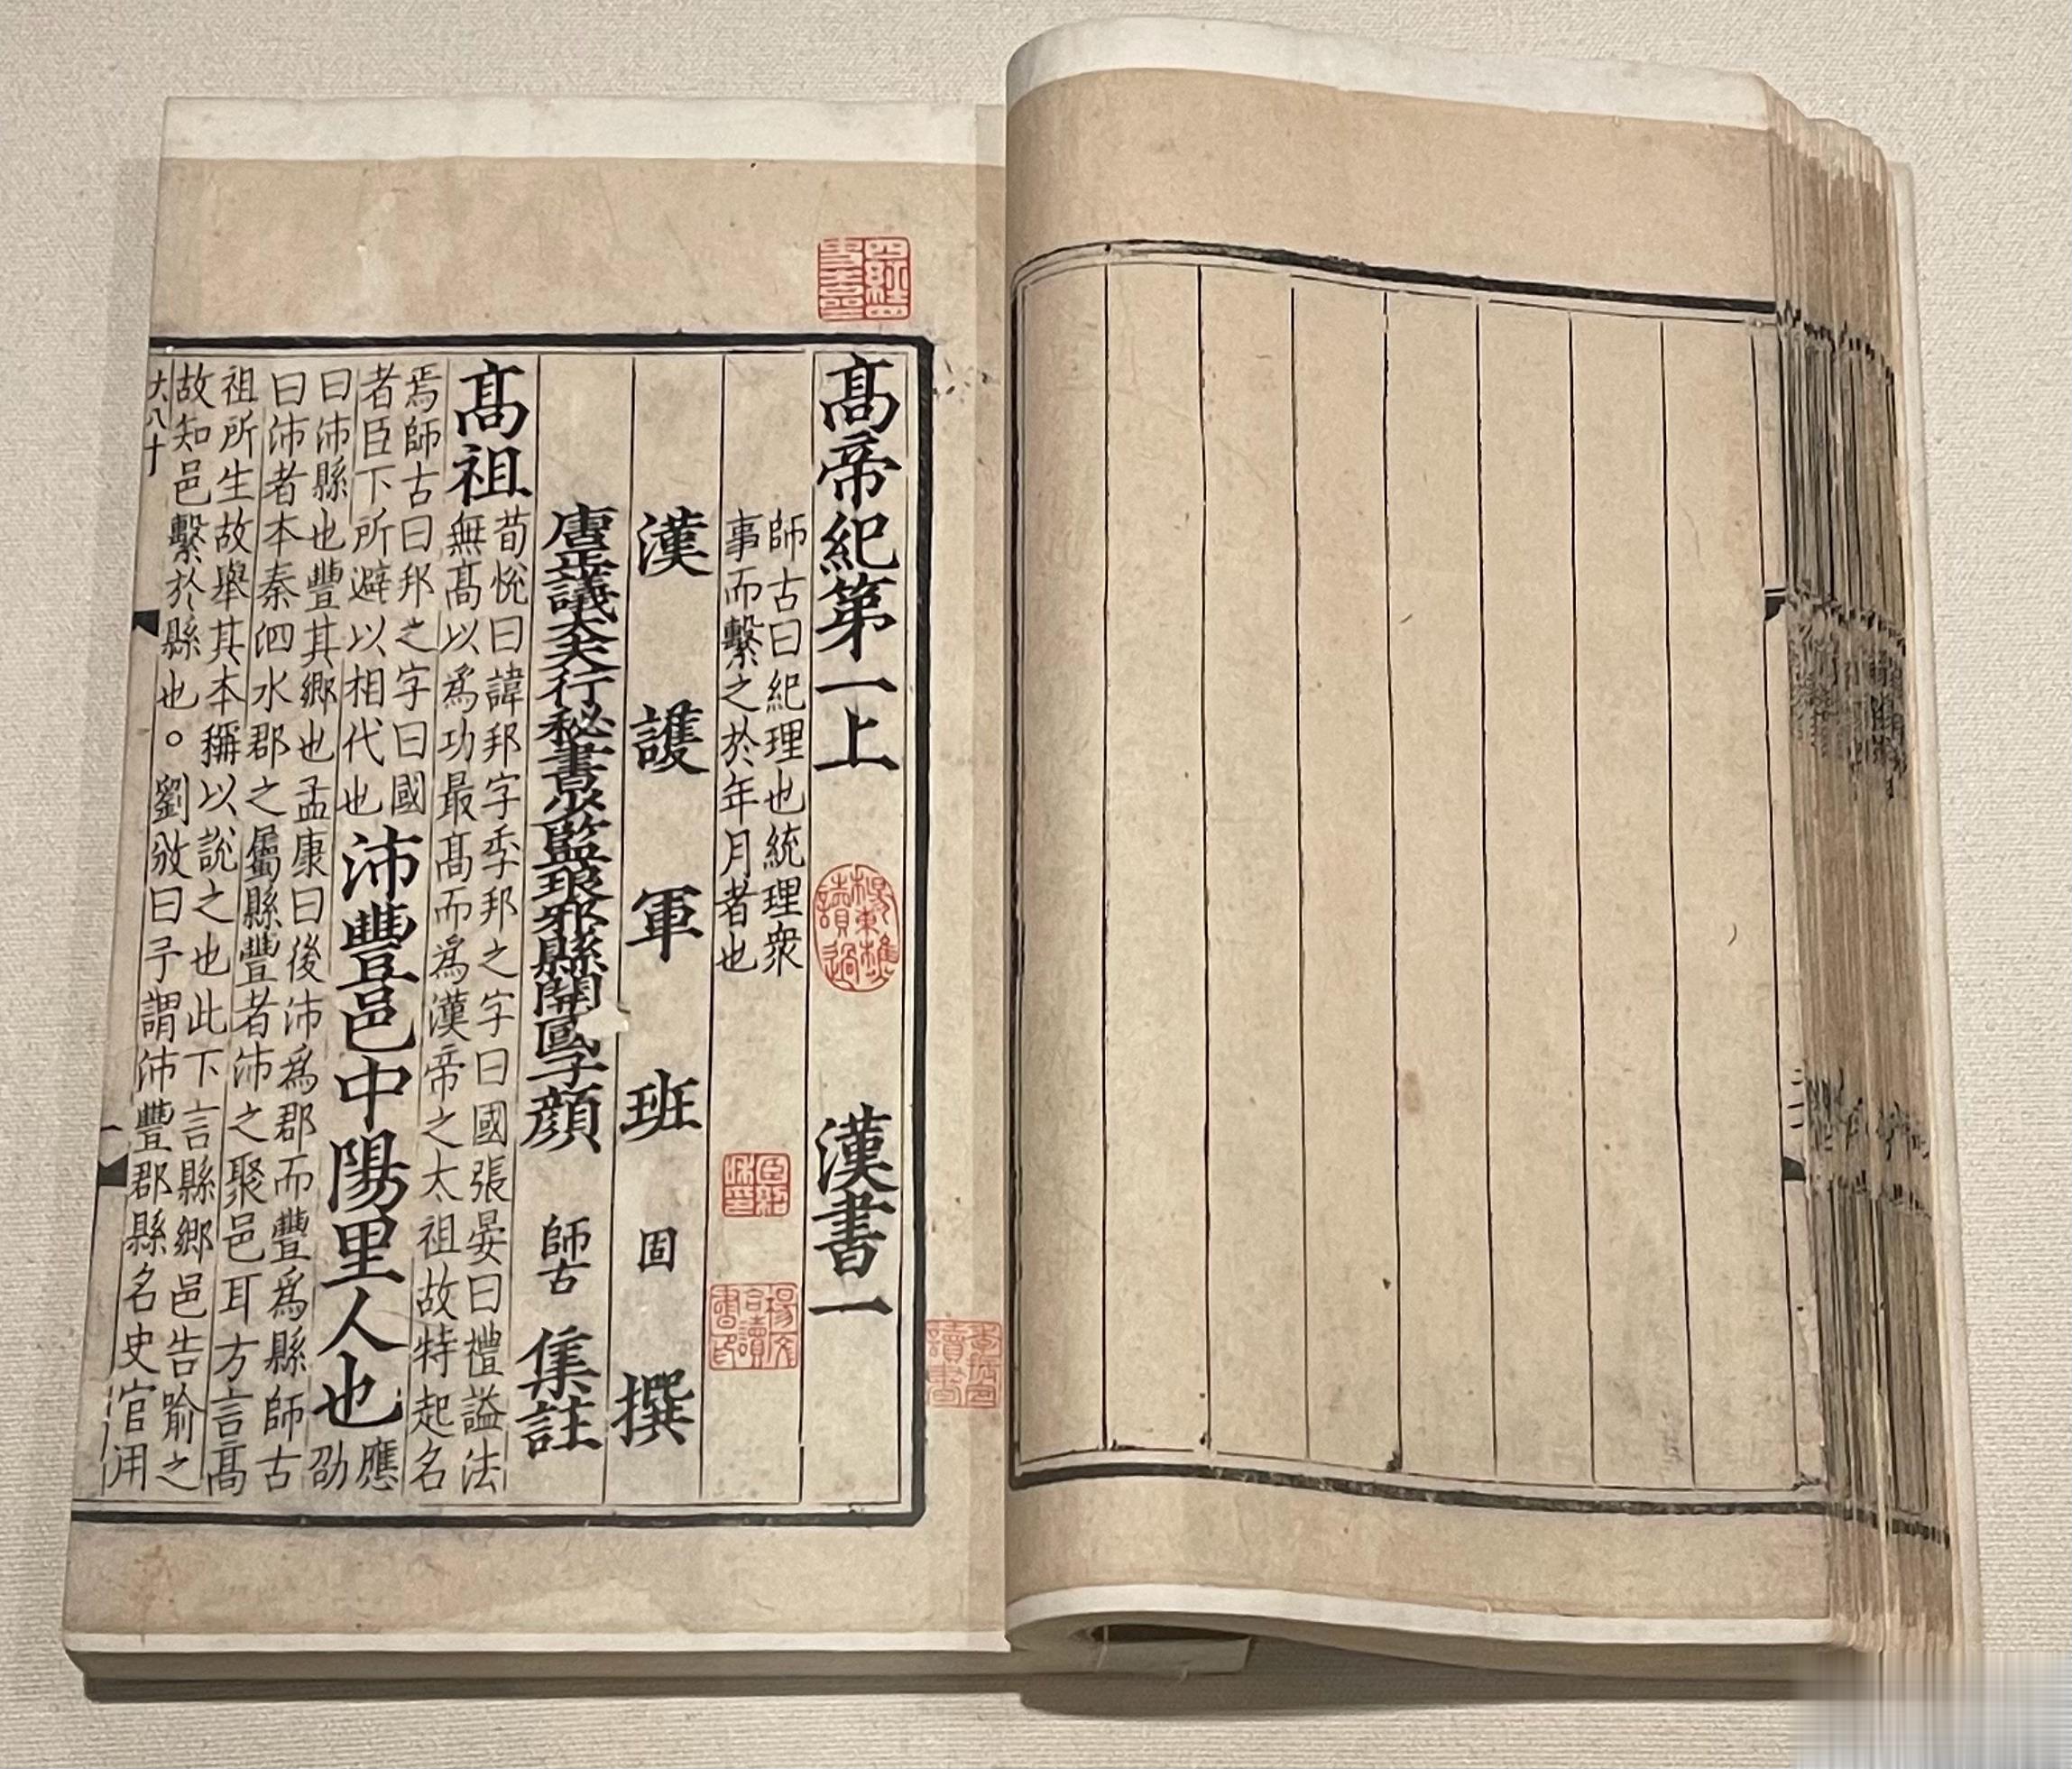 高帝紀第一上 漢書一
師古曰紀理也統理衆
事而繫之於年月者也
漢護軍班固撰
唐正議大夫行秘書少監琅邪縣開國子顏師古集註
高祖
荀悅曰諱邦字季邦之字曰國張晏曰禮謚法
無高以爲功最高而爲漢帝之太祖故特起名
焉師古曰邦之字曰國
者臣下所避以相代也
沛豐邑中陽里人也
應
劭
曰沛縣也豐其鄉也孟康曰後沛爲郡而豐爲縣師古
曰沛者本秦泗水郡之屬縣豐者沛之聚邑耳方言高
祖所生故舉其本稱以說之也此下言縣鄉邑告喻之
故知邑繫於縣也。劉攽曰予謂沛豐郡縣名史官用
大八十
四經四
史之齋
楊東樵
讀過
臣紹
和印